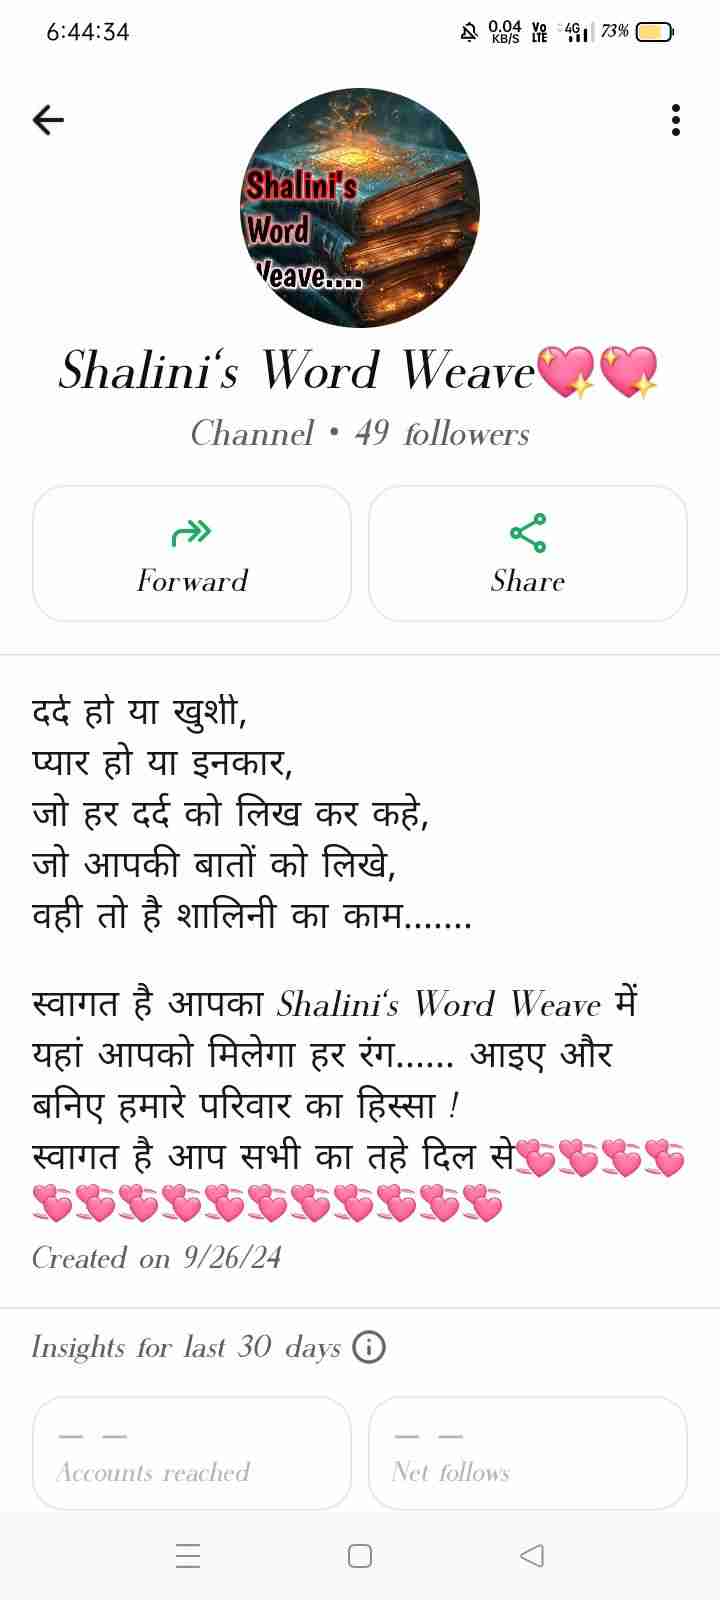 6:44:34 0.04 KB/S Vo LTE 4G 73%
Shalini's
Word
Weave....
Shalini‘s Word Weave💖💖
Channel • 49 followers
Forward Share
दर्द हो या खुशी,
प्यार हो या इनकार,
जो हर दर्द को लिख कर कहे,
जो आपकी बातों को लिखे,
वही तो है शालिनी का काम.......
स्वागत है आपका Shalini‘s Word Weave में
यहां आपको मिलेगा हर रंग...... आइए और
बनिए हमारे परिवार का हिस्सा !
स्वागत है आप सभी का तहे दिल से💞💞💞💞
💞💞💞💞💞💞💞💞💞💞💞
Created on 9/26/24
Insights for last 30 days
— — — —
Accounts reached Net follows